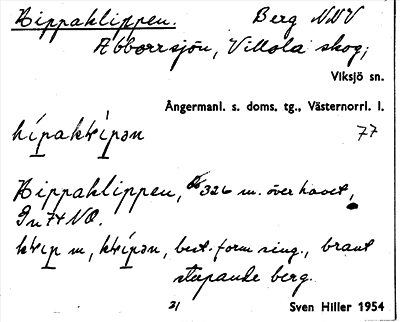 Hippaklippen. Berg NNV
Abborrsjön, Villola skog;
Viksjö sn.
Ångermanl. s. doms. tg., Västernorrl. l.
hípakḷípən 77
Hippaklippen, 326 m. över havet,
9 NO.
m, best. form sing., brant
stupande berg.
21 Sven Hiller 1954